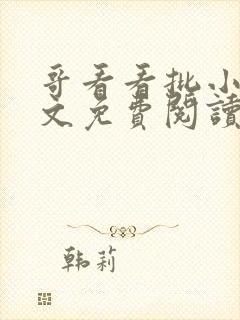 哥看看批小
文免費閱讀
韩莉